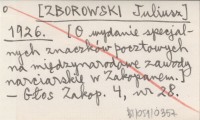 [ZBOROWSKI Juliusz]
1926. [O wydanie specjal-
nych znaczków pocztowych
na międzynarodowe zawody
narciarskie w Zakopanem.]
- Głos Zakop. 4, nr 28.